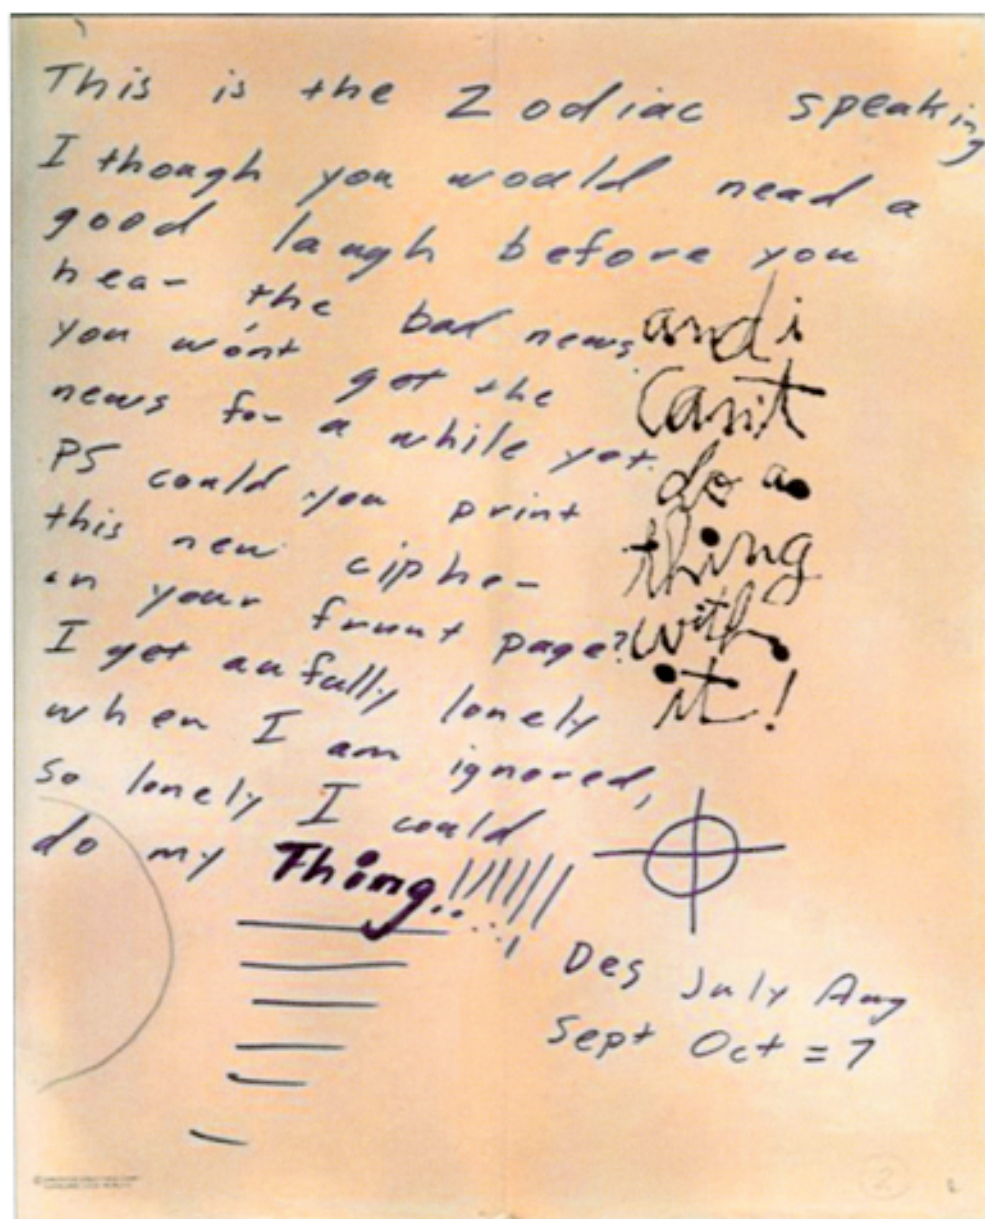 This is the Zodiac speaking
I though you would nead a
good laugh before you
hear the bad news.
you won't get the
news for a while yet.
PS could you print
this new cipher
on your frunt page?
I get aufully lonely
when I am ignored,
so lonely I could
do my Thing..!!!!!!
and i
can't
do a
thing
with
it!
Des July Aug
Sept Oct = 7
2